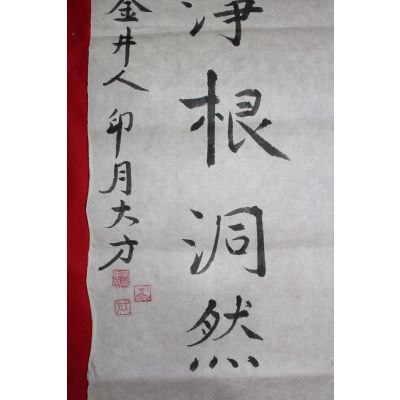 淨根洞然
金井人印月大方